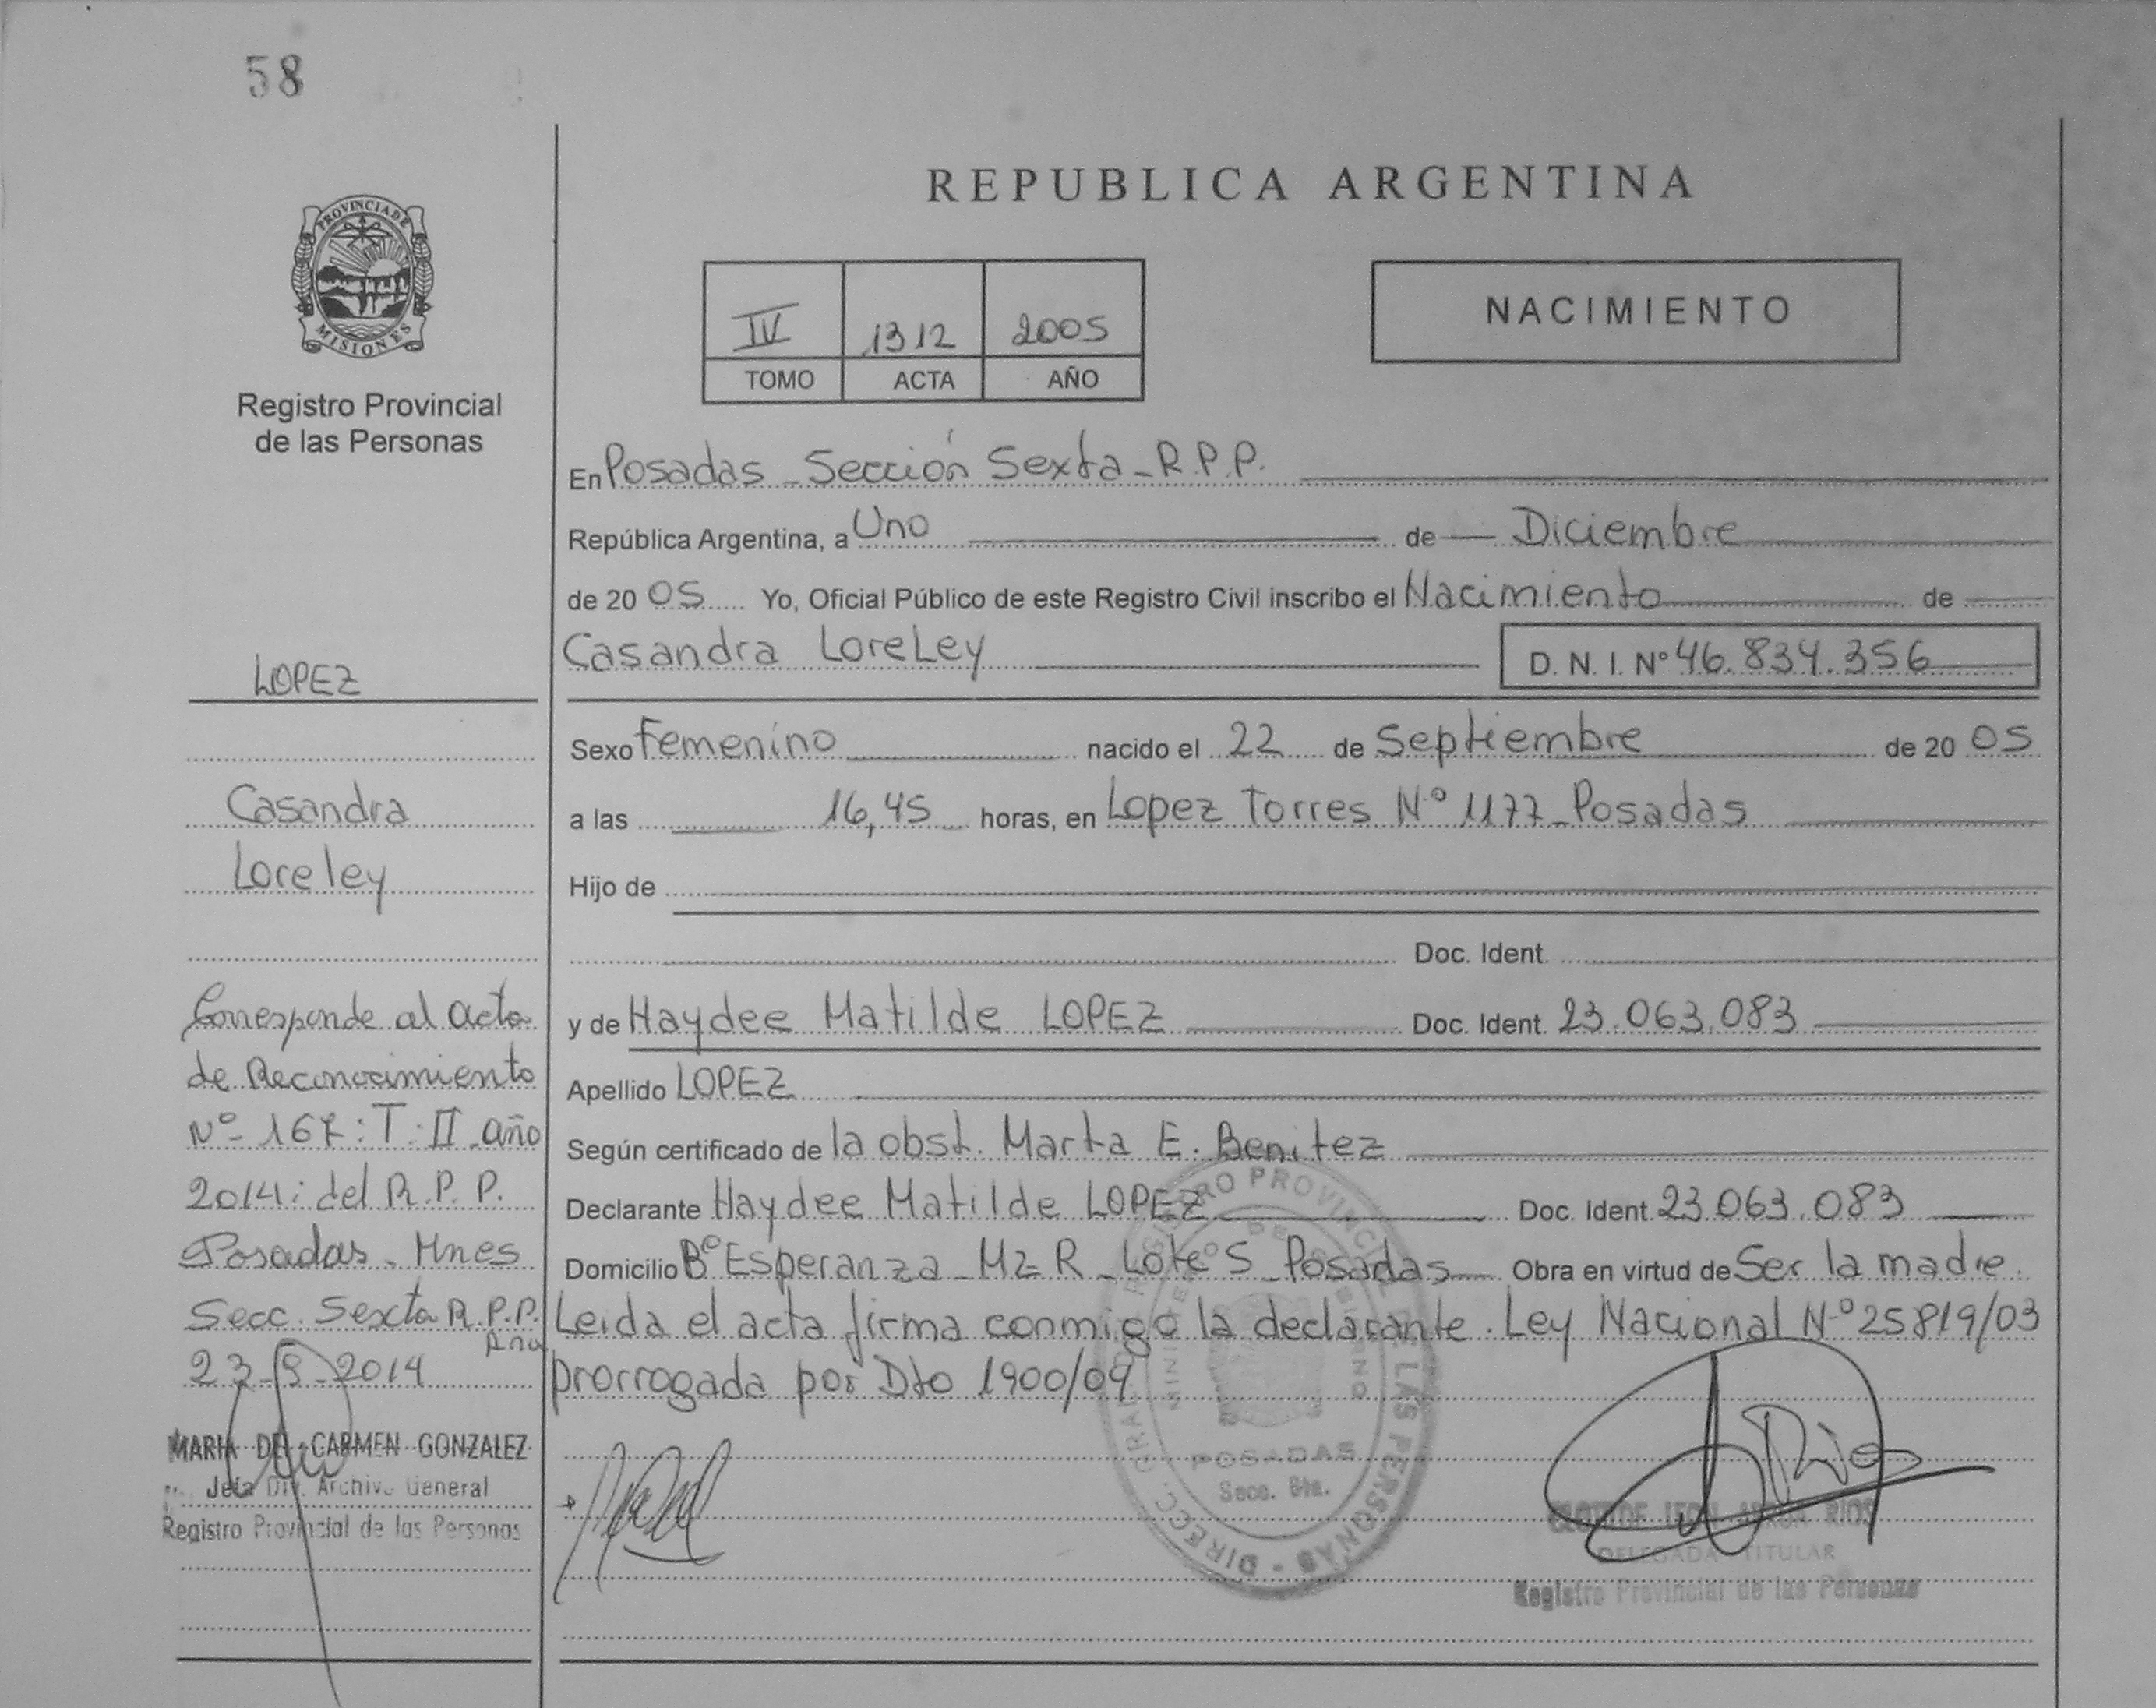 58
PROVINCIA DE
MISIONES
Registro Provincial
de las Personas
LOPEZ
Casandra
Loreley
Corresponde al acta
de Reconocimiento
Nº 167: T: II año
2014: del R.P.P.
Posadas - Mnes
Secc. Sexta R.P.P.
23-9-2014
MARIA DEL CARMEN GONZALEZ
Jefa Div. Archivo General
Registro Provincial de las Personas
REPUBLICA ARGENTINA
IV 1312 2005
TOMO ACTA AÑO
NACIMIENTO
En Posadas - Sección Sexta - R.P.P.
República Argentina, a Uno de Diciembre
de 20 05 Yo, Oficial Público de este Registro Civil inscribo el Nacimiento de
Casandra LoreLey D. N. I. Nº 46.834.356
Sexo Femenino nacido el 22 de Septiembre de 20 05
a las 16,45 horas, en Lopez Torres Nº 1177 - Posadas
Hijo de
Doc. Ident.
y de Haydee Matilde LOPEZ Doc. Ident. 23.063.083
Apellido LOPEZ
Según certificado de la obst. Marta E. Benitez
Declarante Haydee Matilde LOPEZ Doc. Ident. 23.063.083
Domicilio Bº Esperanza - Mz R - Lote 5 - Posadas Obra en virtud de Ser la madre.
Leida el acta firma conmigo la declarante. Ley Nacional Nº 25819/03
prorrogada por Dto 1900/04
DIRECC. GRAL. REGISTRO PROVINCIAL DE LAS PERSONAS
POSADAS
Secc. 6ta.
RIOS
DELEGADA TITULAR
Registro Provincial de las Personas